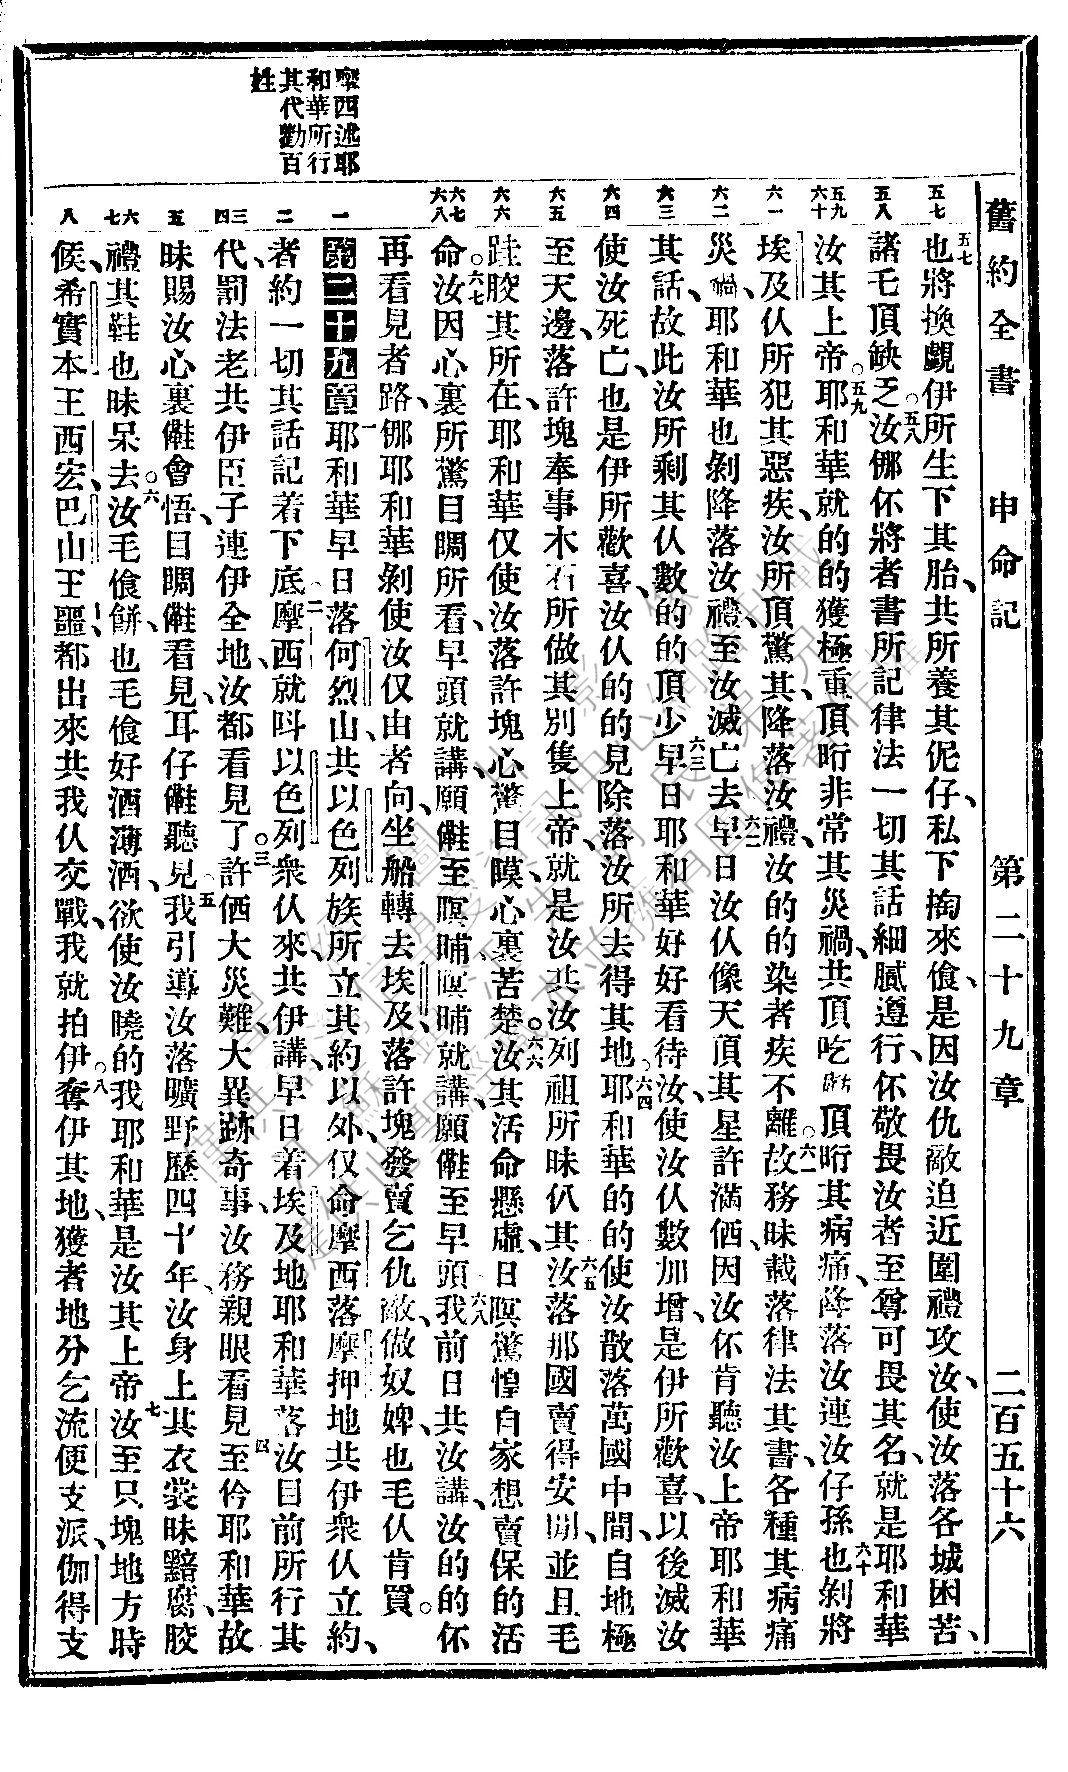 舊約全書 申命記 第二十九章 二百五十六
五七 也將換覷伊所生下其胎、共所養其伲仔、私下掏來飡、是因汝仇敵迫近圍禮攻汝、使汝落各城困苦、
五八 諸乇頂缺乏。五八汝倻伓將者書所記律法一切其話細膩遵行、伓敬畏汝者至尊可畏其名、就是耶和華
五九 六十 汝其上帝。五九耶和華就的的獲極重、頂晍非常其災禍、共頂吃 頂晍其病痛、降落汝連汝仔孫、六十也剝將
六一 埃及仈所犯其惡疾、汝所頂驚其、降落汝禮、汝的的染者疾不離。六一故務昧載落律法其書、各種其病痛
六二 災禍、耶和華也剝降落汝禮、至汝滅亡去。六二早日汝仈像天頂其星許滿、因汝伓肯聽汝上帝耶和華
六三 其話、故此汝所剩其仈數的的頂少。六三早日耶和華好好看待汝、使汝仈數加增、是伊所歡喜、以後滅汝
六四 使汝死亡、也是伊所歡喜、汝仈的的見除落汝所去得其地。六四耶和華的的使汝散落萬國中間、自地極
六五 至天邊、落許塊奉事木石所做其別隻上帝、就是汝共汝列祖所昧仈其。六五汝落那國賣得安閒、並且乇
六六 跬骹其所在、耶和華仅使汝落許塊心驚目瞙、心裏苦楚。六六汝其活命懸虛、日暝驚惶、自家想賣保的活
六七 六八 命。六七汝因心裏所驚、目睭所看、早頭就講、願儺至暝晡、暝晡就講、願儺至早頭。六八我前日共汝講、汝的的伓
再看見者路、倻耶和華剝使汝仅由者向、坐船轉去埃及、落許塊發賣乞仇敵、做奴婢、也毛仈肯買。
一 第二十九章 一耶和華早日落何烈山共以色列族所立其約以外、仅命摩西落摩押地共伊衆仈立約、
二 者約一切其話記着下底。二摩西就呌以色列衆仈來、共伊講、早日着埃及地、耶和華落汝目前所行其
三 四 代、罰法老共伊臣子連伊全地、汝都看見了。三許価大災難、大異跡奇事、汝務親眼看見。四至伶耶和華故
五 昧賜汝心裏儺會悟、目睭儺看見、耳仔儺聽見。五我引導汝落曠野歷四十年、汝身上其衣裳昧黯腐、骹
六 七 禮其鞋也昧呆去。六汝毛飡餅、也毛飡好酒薄酒、欲使汝曉的我耶和華是汝其上帝。七汝至只塊地方時
八 候、希實本王西宏、巴山王噩都出來共我仈交戰、我就拍伊。八奪伊其地、獲者地分乞流便支派、伽得支
摩西述耶
和華所行
其代勸百
姓